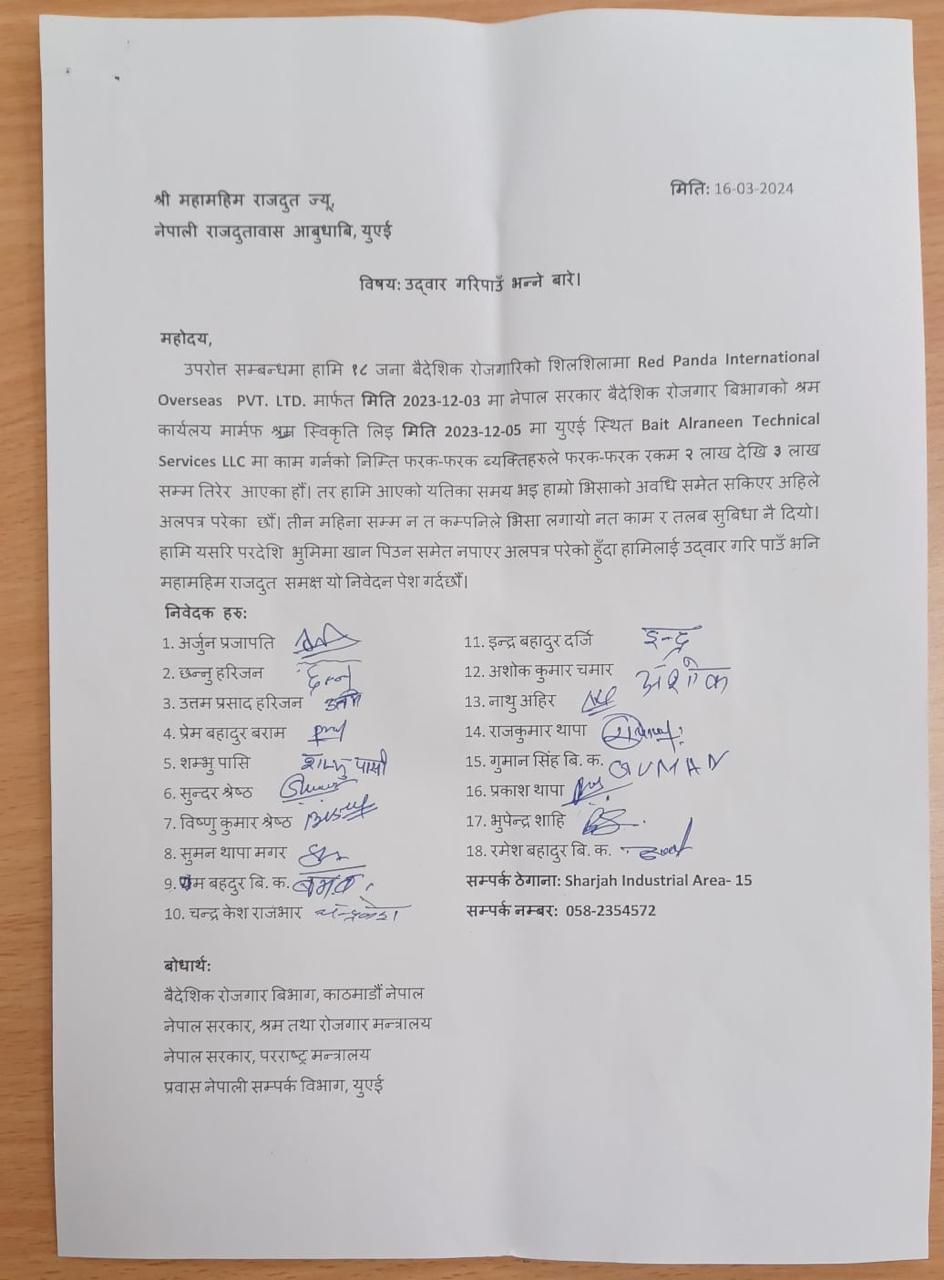 मिति: 16-03-2024
श्री महामहिम राजदुत ज्यू,
नेपाली राजदुतावास आबुधाबि, युएई
विषय: उद्वार गरिपाउँ भन्ने बारे।
महोदय,
उपरोत्त सम्बन्धमा हामि १८ जना बैदेशिक रोजगारिको शिलशिलामा Red Panda International
Overseas PVT. LTD. मार्फत मिति 2023-12-03 मा नेपाल सरकार बैदेशिक रोजगार बिभागको श्रम
कार्यलय मार्मफ श्रम स्विकृति लिइ मिति 2023-12-05 मा युएई स्थित Bait Alraneen Technical
Services LLC मा काम गर्नको निम्ति फरक-फरक ब्यक्तिहरुले फरक-फरक रकम २ लाख देखि ३ लाख
सम्म तिरेर आएका हौं। तर हामि आएको यतिका समय भइ हाम्रो भिसाको अवधि समेत सकिएर अहिले
अलपत्र परेका छौं। तीन महिना सम्म न त कम्पनिले भिसा लगायो नत काम र तलब सुबिधा नै दियो।
हामि यसरि परदेशि भुमिमा खान पिउन समेत नपाएर अलपत्र परेको हुँदा हामिलाई उद्वार गरि पाउँ भनि
महामहिम राजदुत समक्ष यो निवेदन पेश गर्दछौं।
निवेदक हरु:
1. अर्जुन प्रजापति
2. छन्नु हरिजन छन्नु
3. उत्तम प्रसाद हरिजन उत्तम
4. प्रेम बहादुर बराम
5. शम्भु पासि शम्भु पासी
6. सुन्दर श्रेष्ठ
7. विष्णु कुमार श्रेष्ठ
8. सुमन थापा मगर
9. बहदुर बि. क.
10. चन्द्र केश राजभार चन्द्रकेश
11. इन्द्र बहादुर दर्जि इन्द्र
12. अशोक कुमार चमार अशोक
13. नाथु अहिर
14. राजकुमार थापा
15. गुमान सिंह बि. क. GUMAN
16. प्रकाश थापा
17. भुपेन्द्र शाहि
18. रमेश बहादुर बि. क.
सम्पर्क ठेगाना: Sharjah Industrial Area- 15
सम्पर्क नम्बर: 058-2354572
बोधार्थ:
बैदेशिक रोजगार बिभाग, काठमाडौं नेपाल
नेपाल सरकार, श्रम तथा रोजगार मन्त्रालय
नेपाल सरकार, परराष्ट्र मन्त्रालय
प्रवास नेपाली सम्पर्क विभाग, युएई